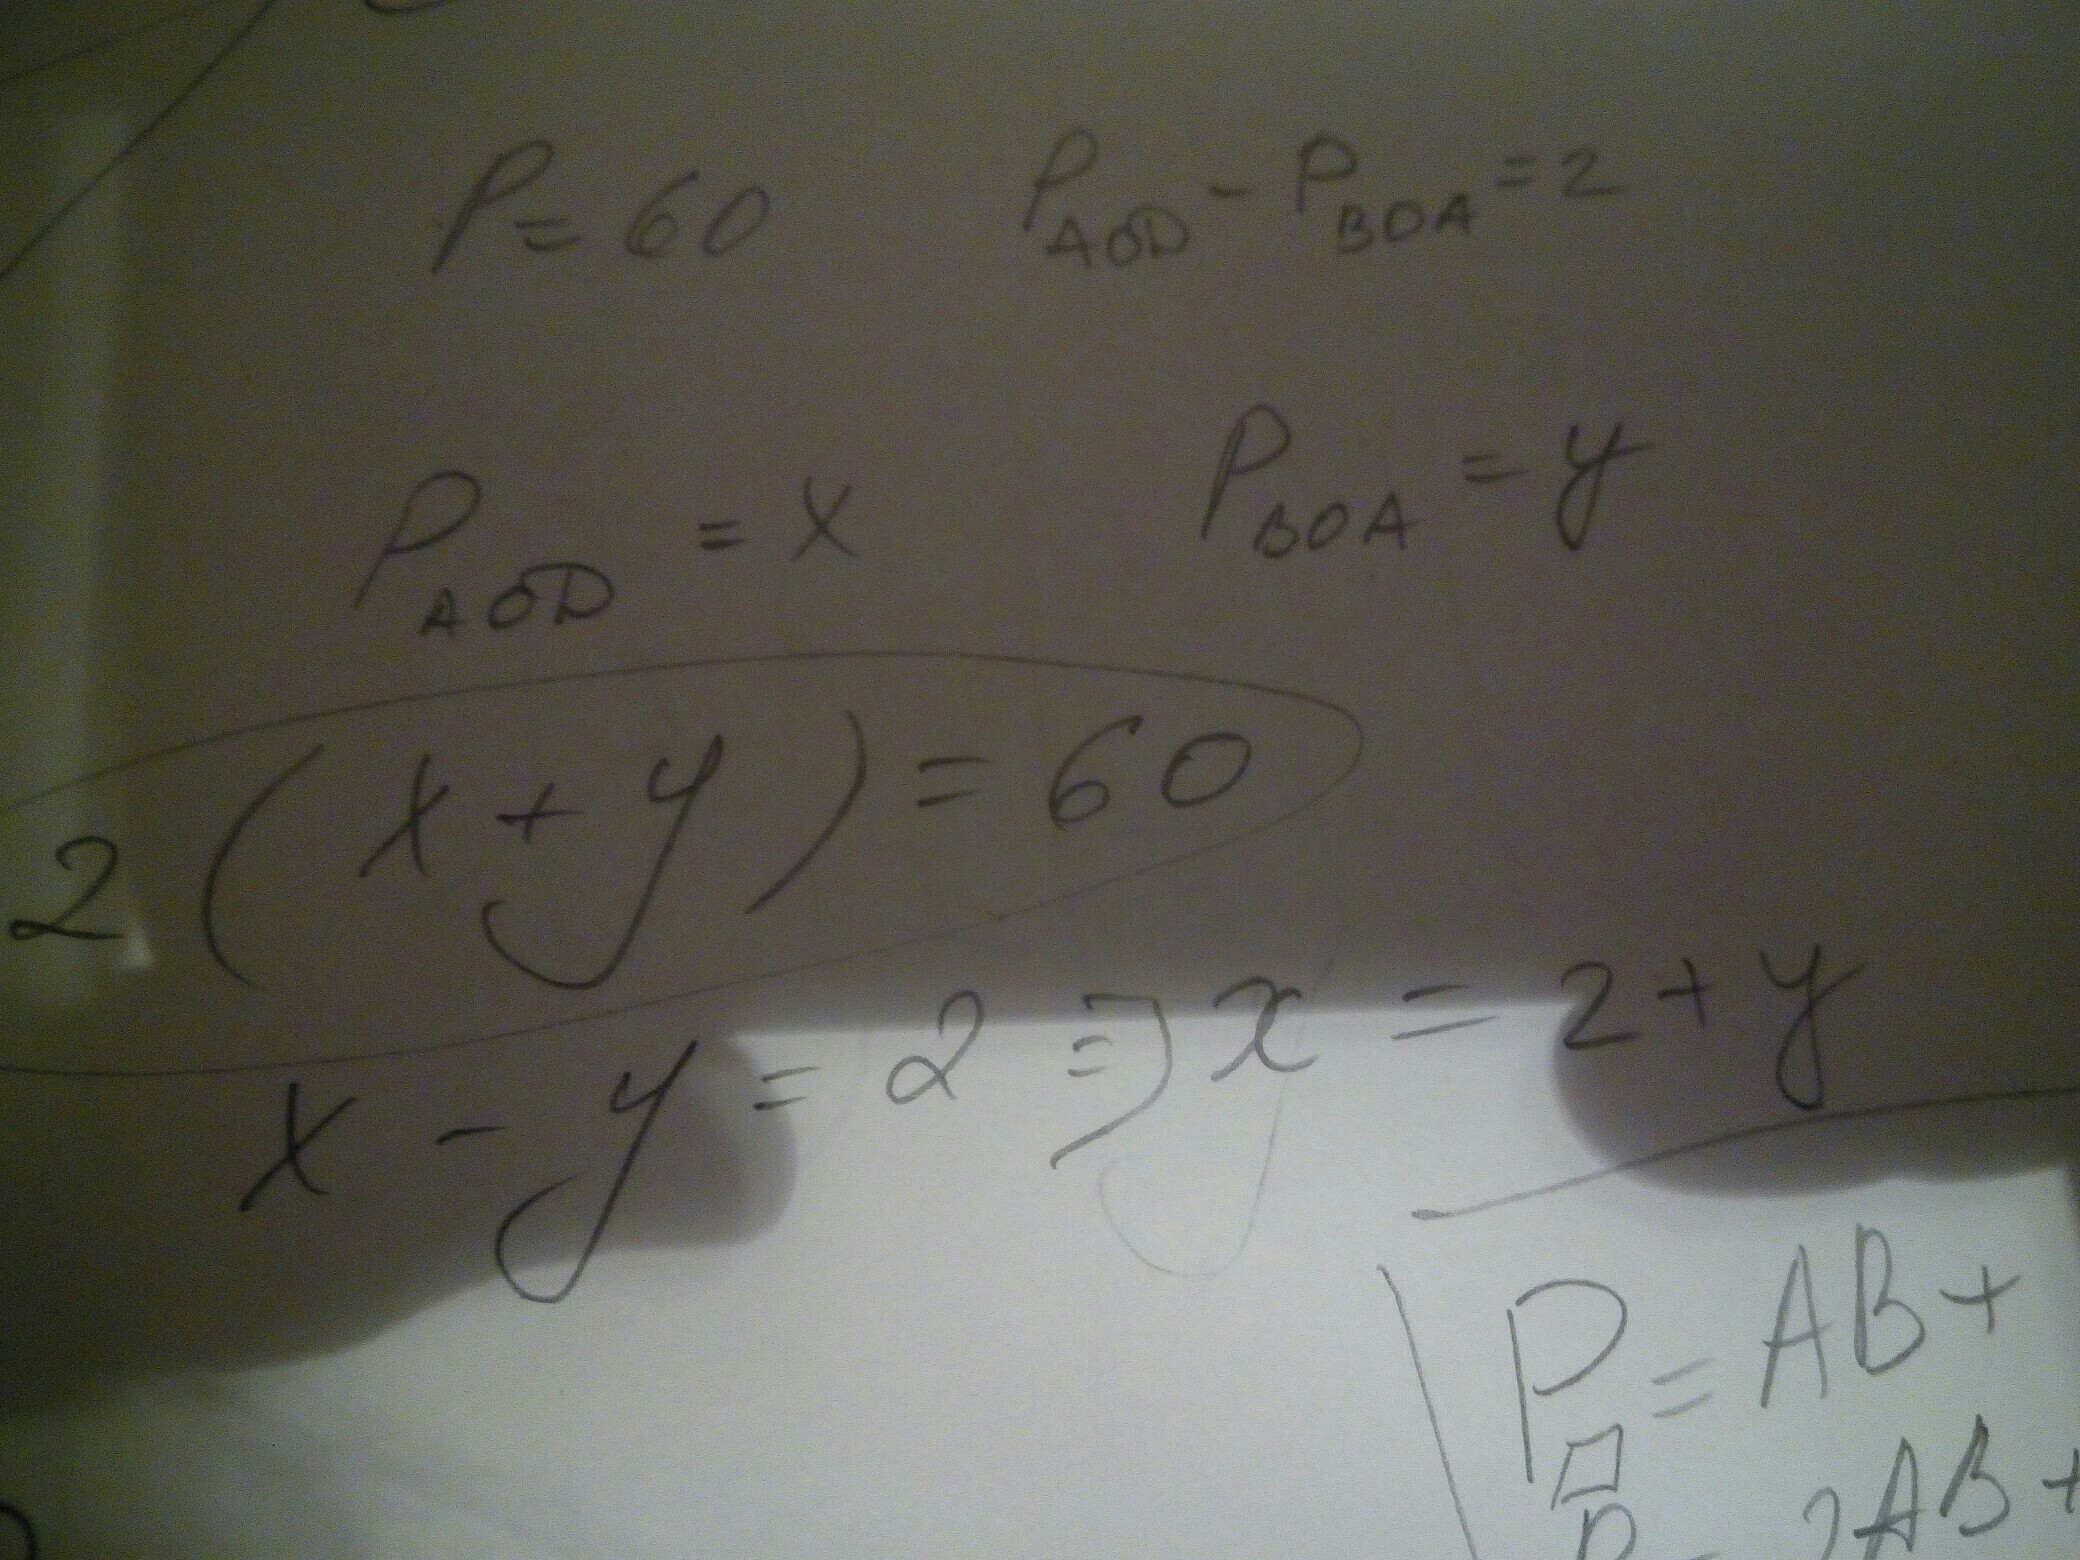 P = 60 P AOD - P BOA = 2
P AOD = x P BOA = y
2 (x + y) = 60
x - y = 2 => x = 2 + y
P▱ = AB +
2AB +